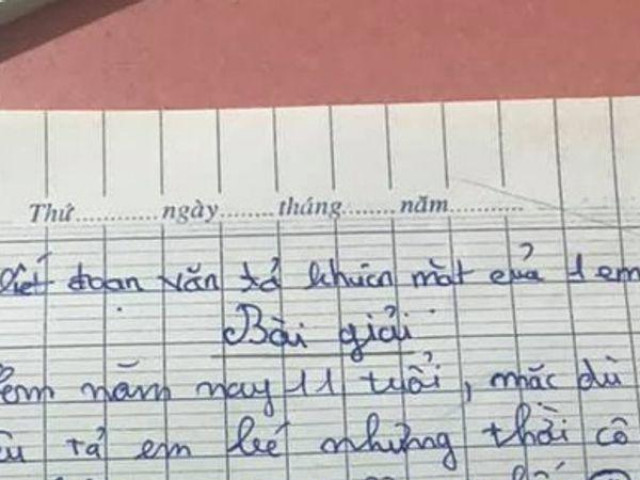 Thứ............ngày........tháng........năm............
Viết đoạn văn tả khuôn mặt của 1 em
Bài giải
Em năm nay 11 tuổi, mặc dù
tả em bé nhưng thời cô